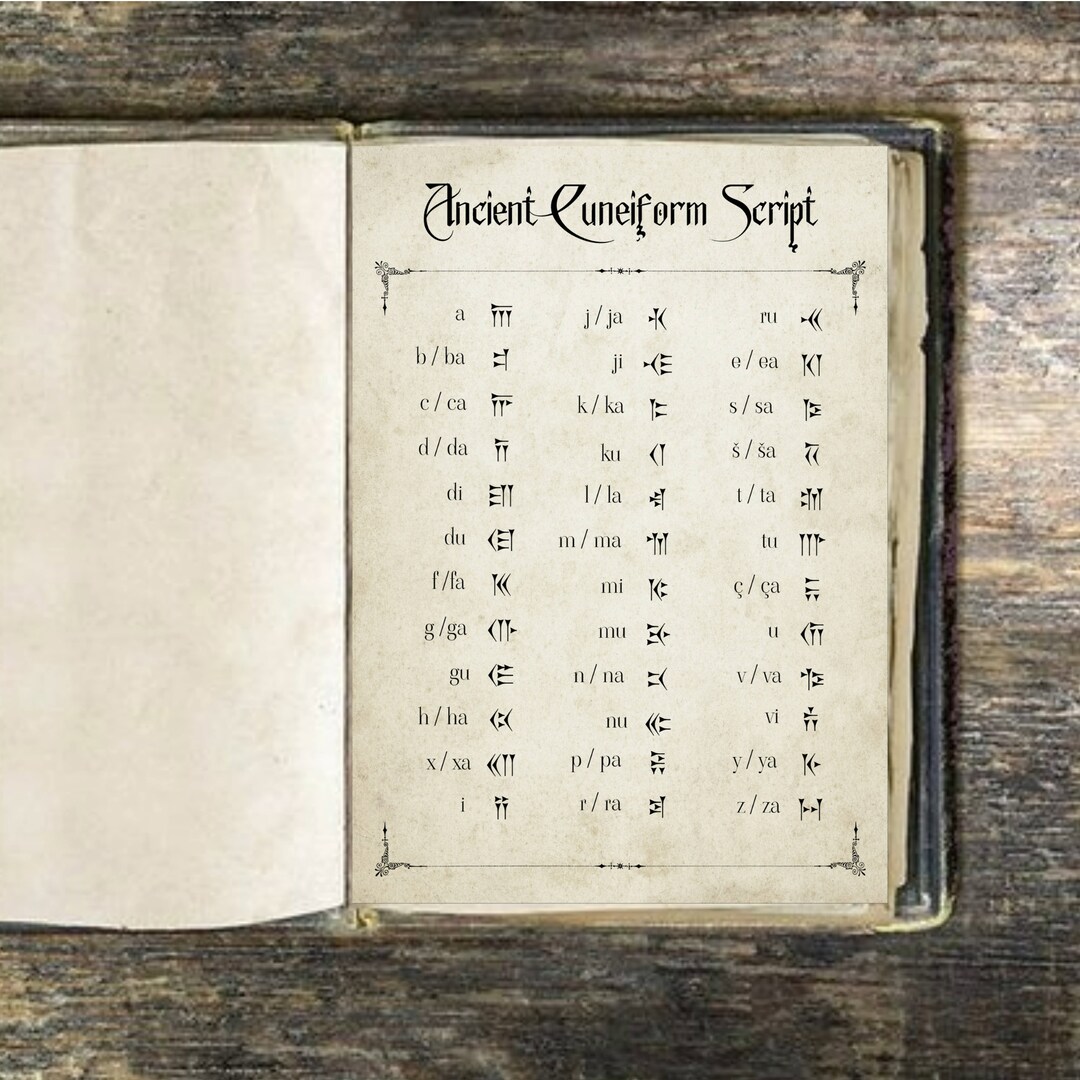 Ancient Cuneiform Script
a 𐎠
b / ba 𐎲
c / ca 𐎨
d / da 𐎭
di 𐎮
du 𐎯
f /fa 𐎳
g /ga 𐎥
gu 𐎦
h / ha 𐏃
x / xa 𐎧
i 𐎡
j / ja 𐎩
ji 𐎪
k / ka 𐎣
ku 𐎤
l / la 𐎾
m / ma 𐎶
mi 𐎷
mu 𐎸
n / na 𐎴
nu 𐎵
p / pa 𐎱
r / ra 𐎼
ru 𐎽
e / ea 𐎰
s / sa 𐎿
š / ša 𐏁
t / ta 𐎫
tu 𐎬
ç / ça 𐏂
u 𐎢
v / va 𐎺
vi 𐎻
y / ya 𐎹
z / za 𐏀